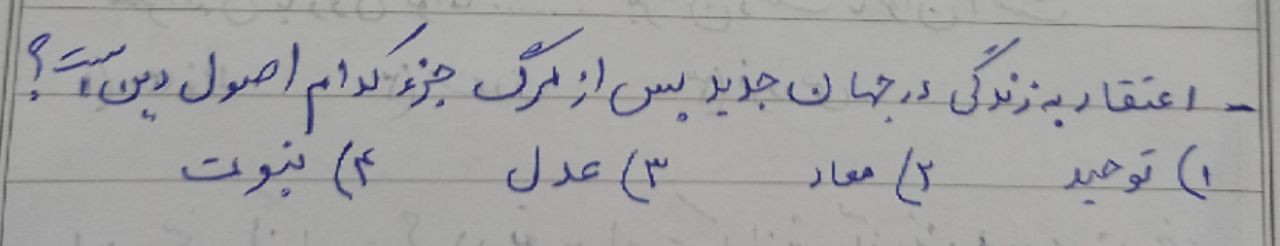 - اعتقاد به زندگی در جهان جدید پس از مرگ جزء کدام اصول دین است؟
۱) توحید ۲) معاد ۳) عدل ۴) نبوت